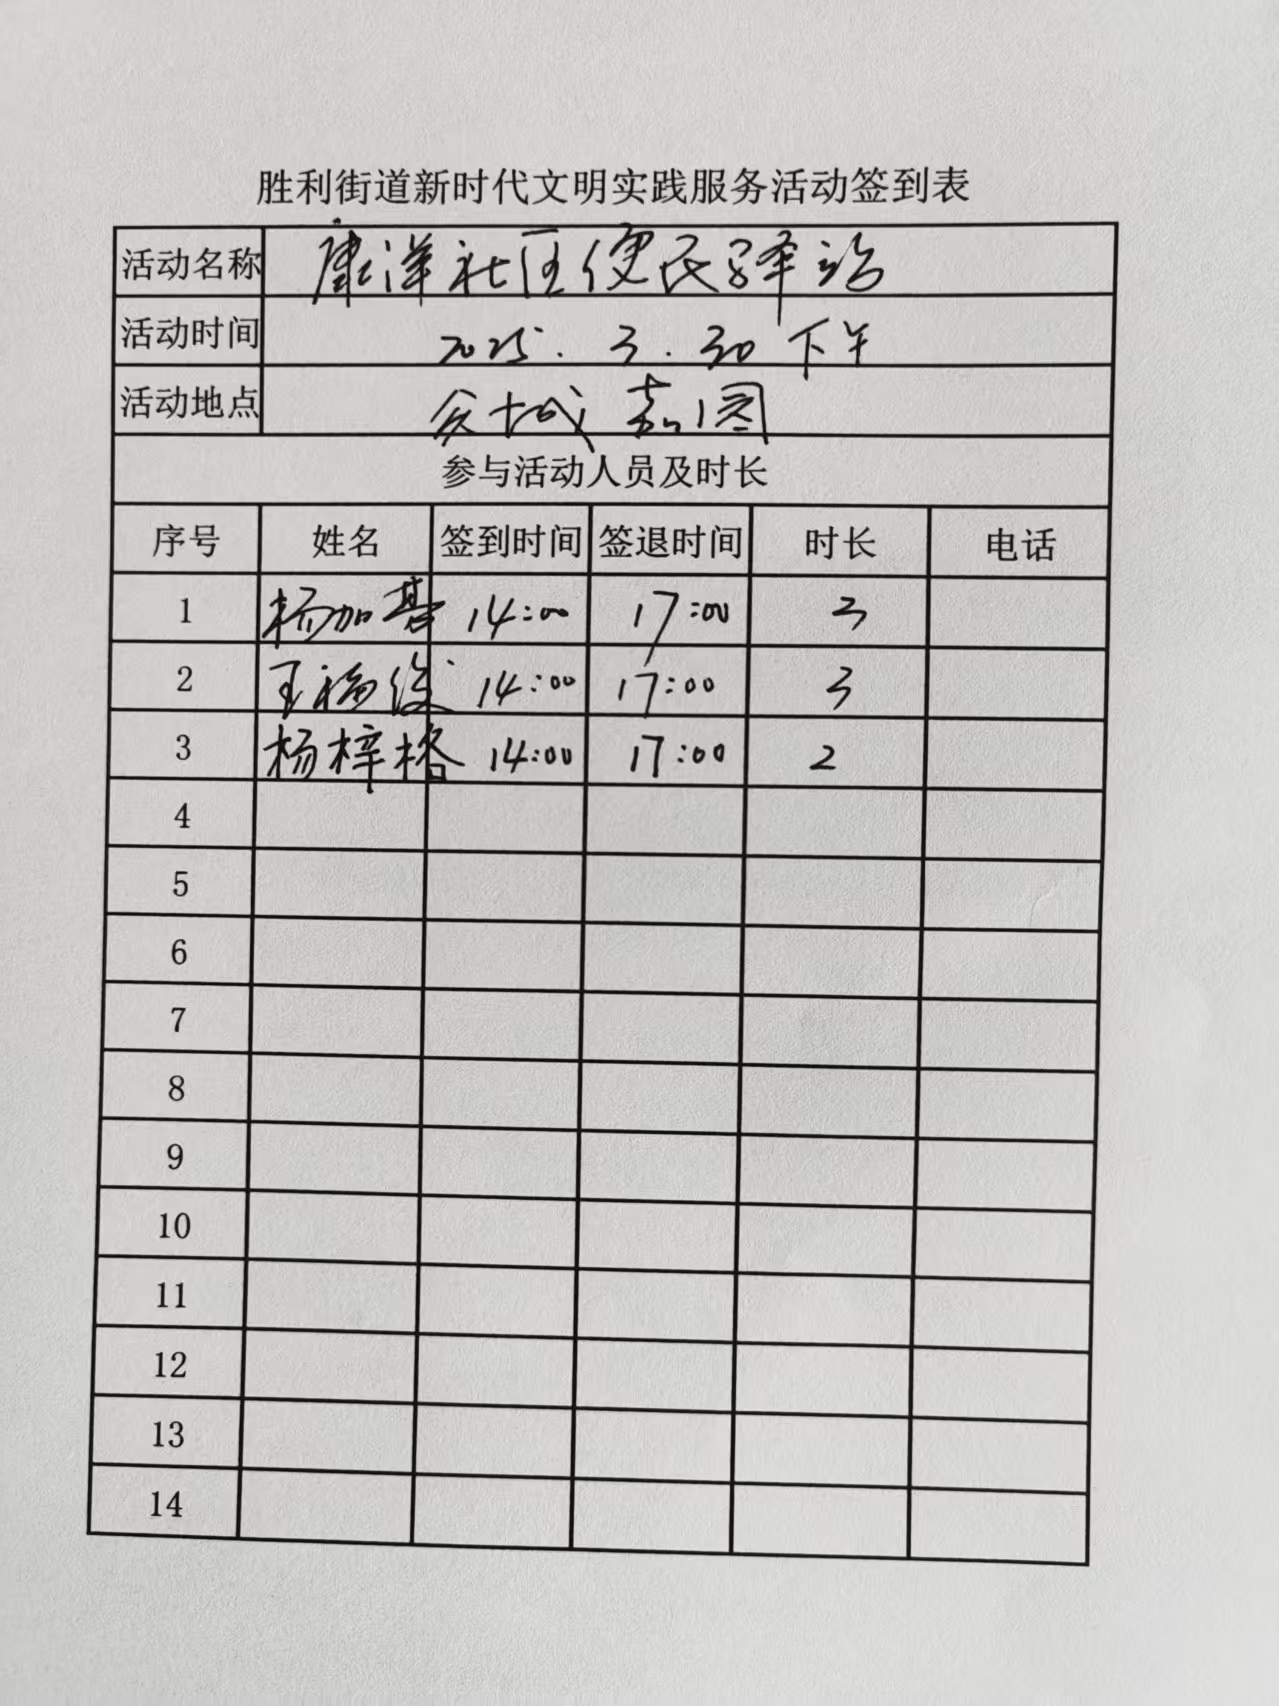 胜利街道新时代文明实践服务活动签到表
活动名称 康洋社区便民驿站
活动时间 2025.3.30下午
活动地点 城嘉图
参与活动人员及时长
序号 姓名 签到时间 签退时间 时长 电话
1 杨加基 14:00 17:00 3
2 王福俊 14:00 17:00 3
3 杨梓格 14:00 17:00 2
4
5
6
7
8
9
10
11
12
13
14